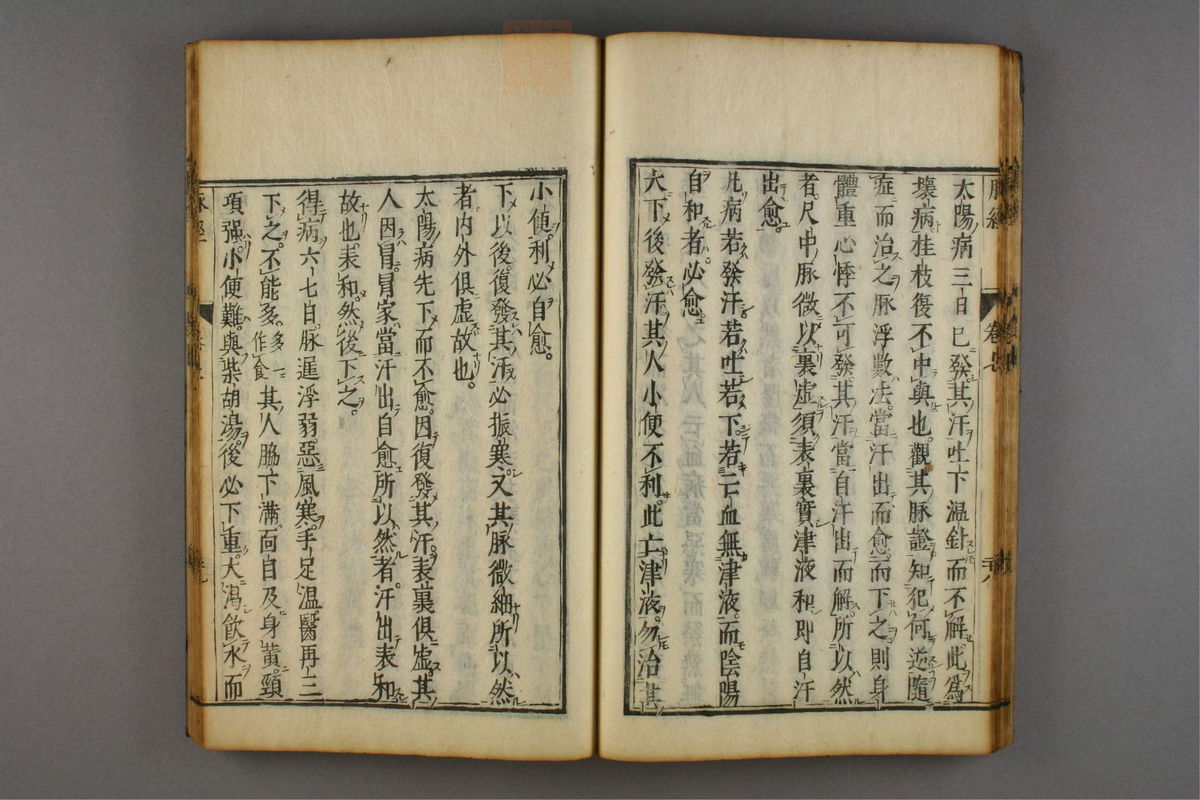 太陽病三日已發其汗吐下温針而不解此爲
壞病桂枝復不中與也觀其脉證知犯何逆隨
症而治之脉浮數法當汗出而愈而下之則身
體重心悸不可發其汗當自汗出而解所以然
者尺中脉微以裏虛須表裏實津液和即自汗
出愈
凡病若發汗若吐若下若亡血無津液而陰陽
自和者必愈
大下後發汗其人小便不利此亡津液勿治其
小便利必自愈
下以後復發其汗必振寒又其脉微細所以然
者内外俱虛故也
太陽病先下而不愈因復發其汗表裏俱虛其
人因冒冒家當汗出自愈所以然者汗出表和
故也表和然後下之
得病六七日脉遲浮弱惡風寒手足温醫再三
下之不能多多一作食其人脇下滿面目及身黄頸
項强小便難與柴胡湯後必下重大渇飲水而
脉經